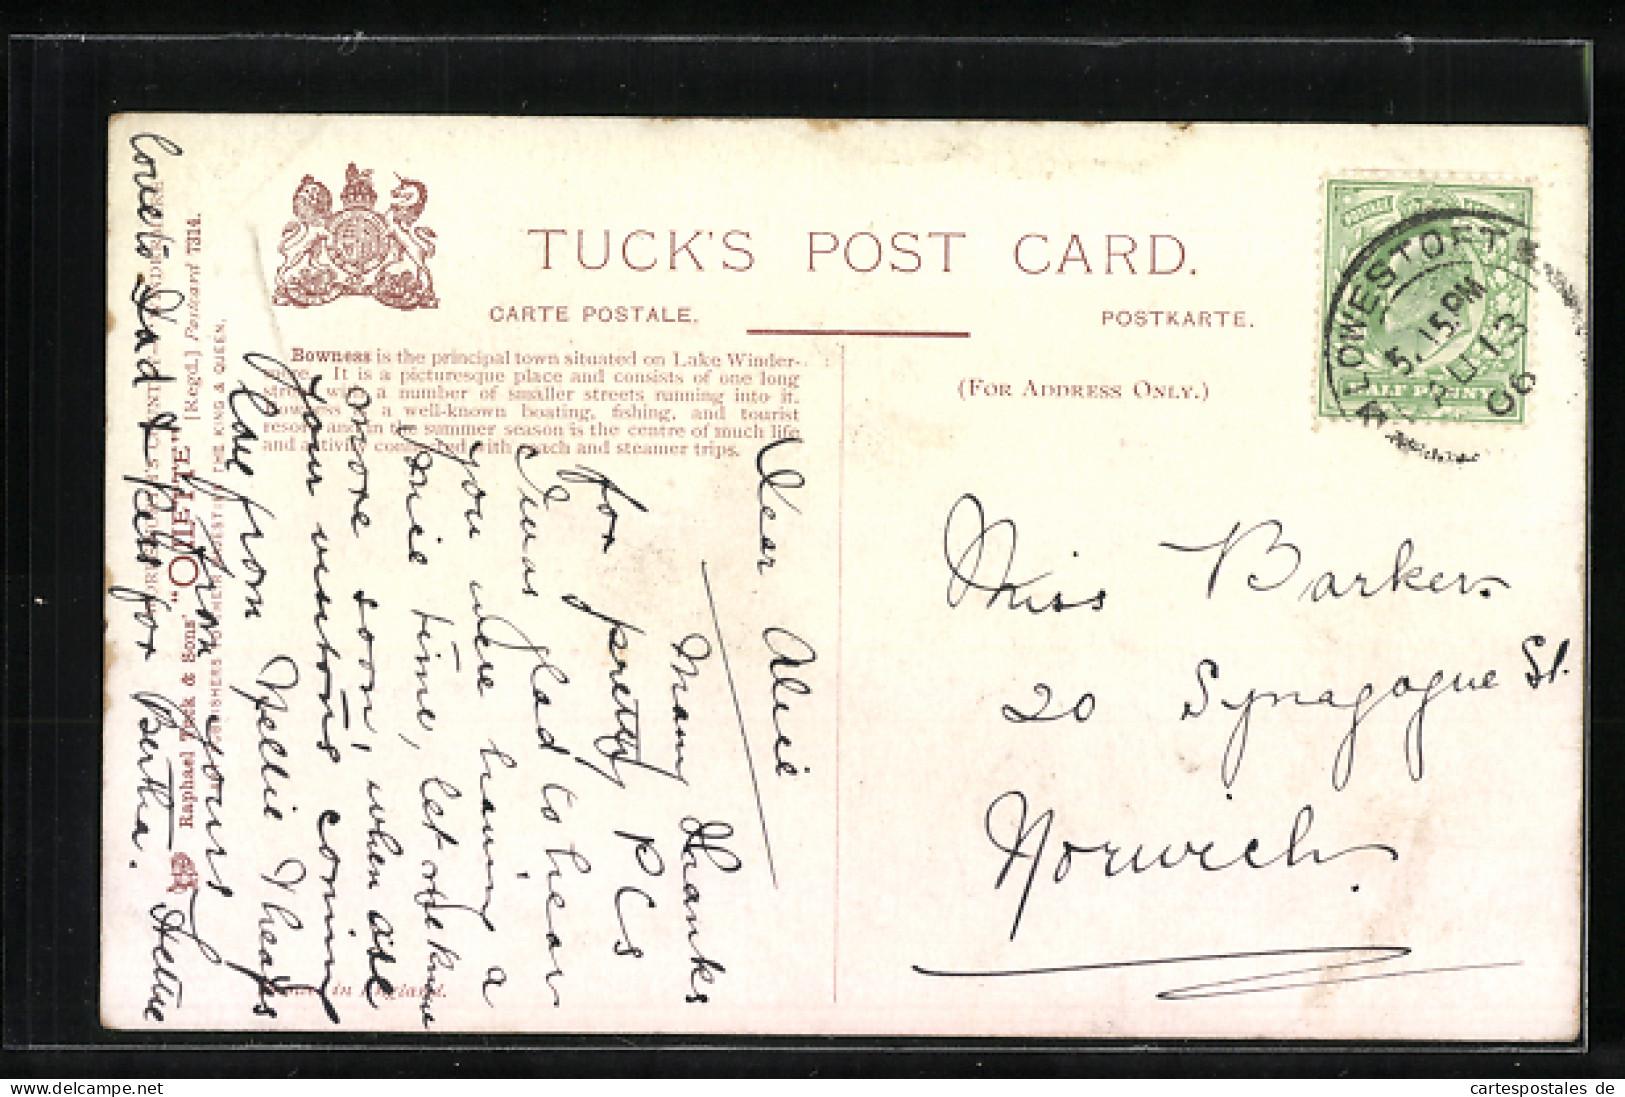 TUCK'S POST CARD.
CARTE POSTALE.
POSTKARTE.
(FOR ADDRESS ONLY.)
Bowness is the principal town situated on Lake Winder-
mere. It is a picturesque place and consists of one long
street with a number of smaller streets running into it.
Bowness is a well-known boating, fishing, and tourist
resort and in the summer season is the centre of much life
and activity connected with coach and steamer trips.
LOWESTOFT
5.15 PM
JU 13
06
HALF PENNY
Miss Barker
20 Synagogue St.
Norwich.
Dear Alice
Many Thanks
for pretty P Cs
I was glad to hear
you were having a
nice time, let me know
more soon, when are
your visitors coming
Love from Nellie &
from yours
love to Dad & for Bertha.
Raphael Tuck & Sons' "OILETTE" [Regd.] Postcard 7314.
PUBLISHERS TO THEIR MAJESTIES THE KING & QUEEN.
in England.
cartespostales de